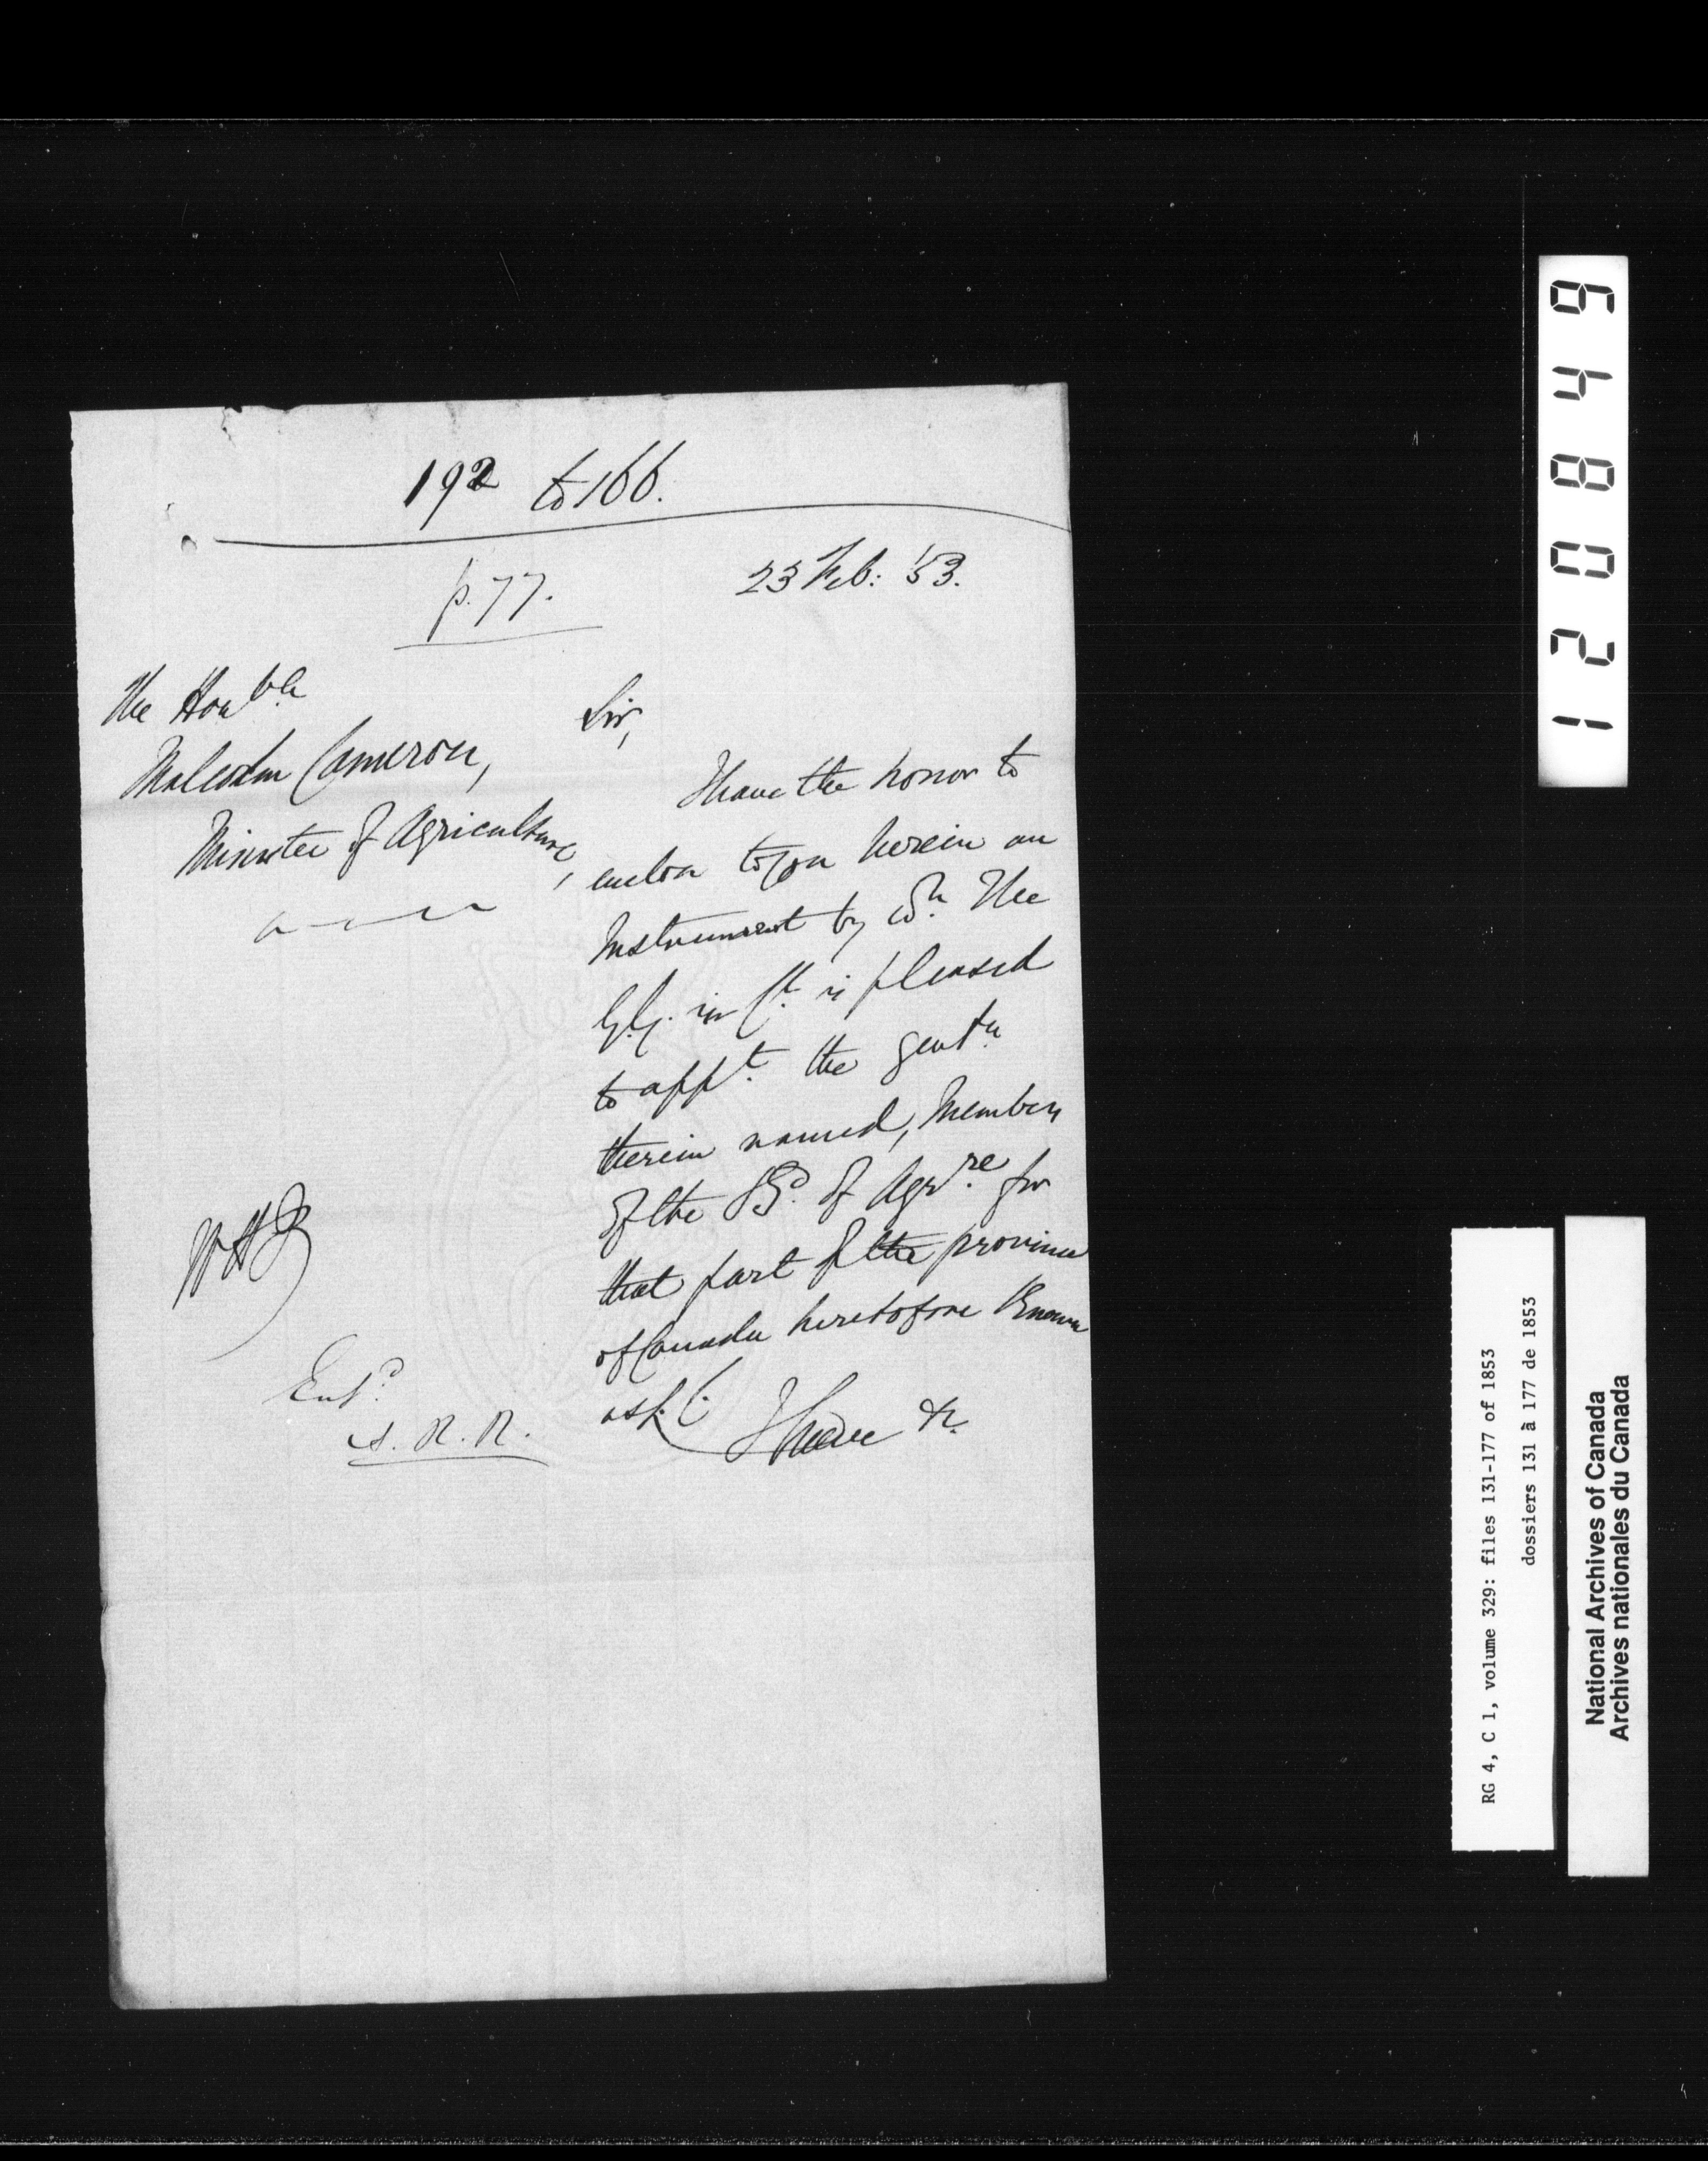 192 to 166.
p. 77.
23 Feb: '53.
The Honble
Malcolm Cameron,
Minister of Agriculture,
Sir,
I have the honor to
enclose to you herein an
Instrument by wh. The
G.G. in C. is pleased
to appt. the gentn
therein named, Members
of the Bd. of Agrre. for
that part of the province
of Canada heretofore Known
as L. C.
I have &c.
Entd.
A. R. R.
120849
RG 4, C 1, volume 329: files 131-177 of 1853
dossiers 131 à 177 de 1853
National Archives of Canada
Archives nationales du Canada